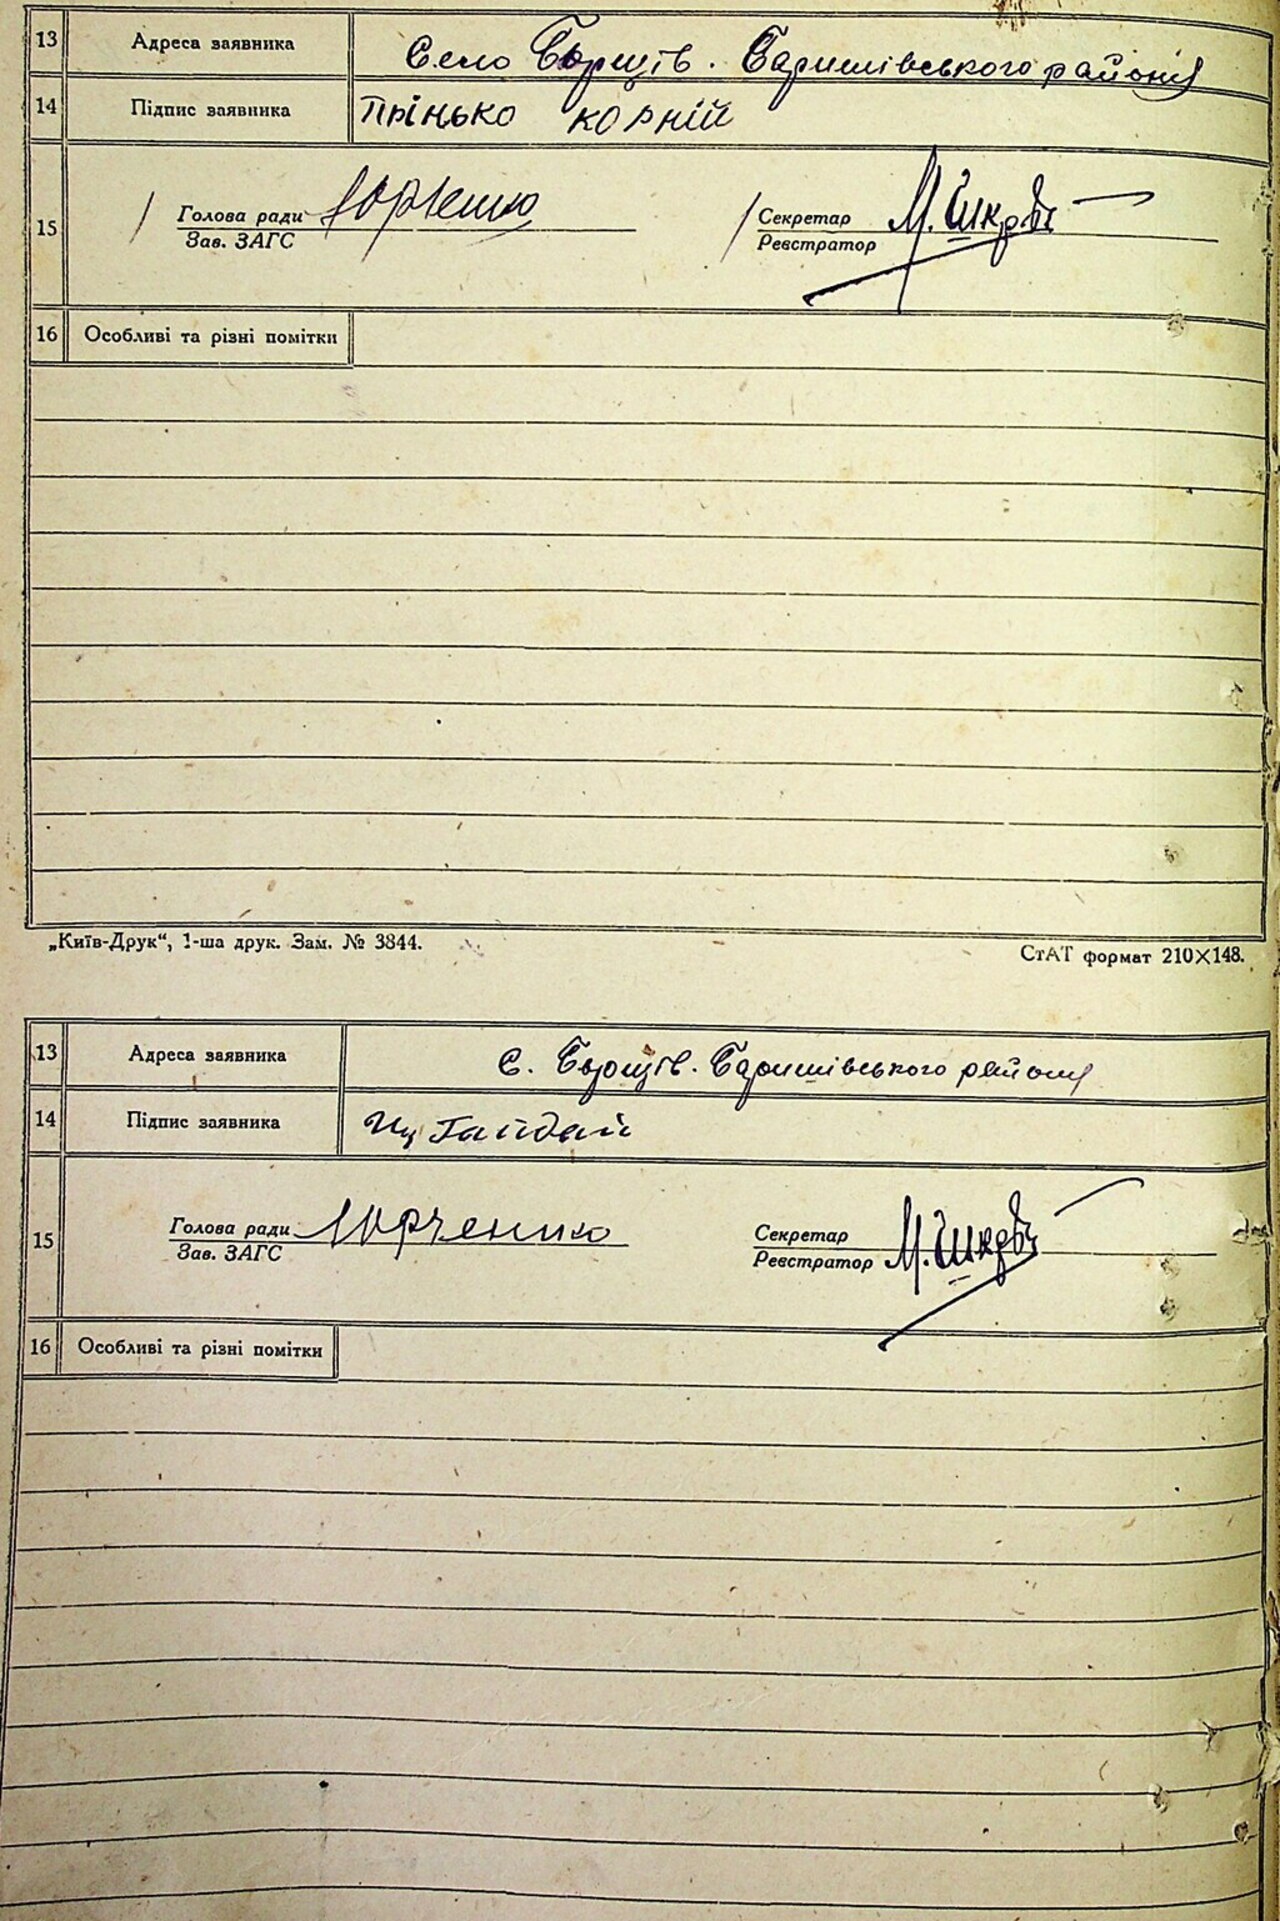 13 Адреса заявника Село Борщів. Баришівського району
14 Підпис заявника Прінько корній
15 Голова ради Юрченко Секретар
Зав. ЗАГС Реєстратор
16 Особливі та різні помітки
„Київ-Друк“, 1-ша друк. Зам. № 3844. СтАТ формат 210×148.
13 Адреса заявника с. Борщів. Баришівського району
14 Підпис заявника Гайдай
15 Голова ради Юрченко Секретар
Зав. ЗАГС Реєстратор
16 Особливі та різні помітки